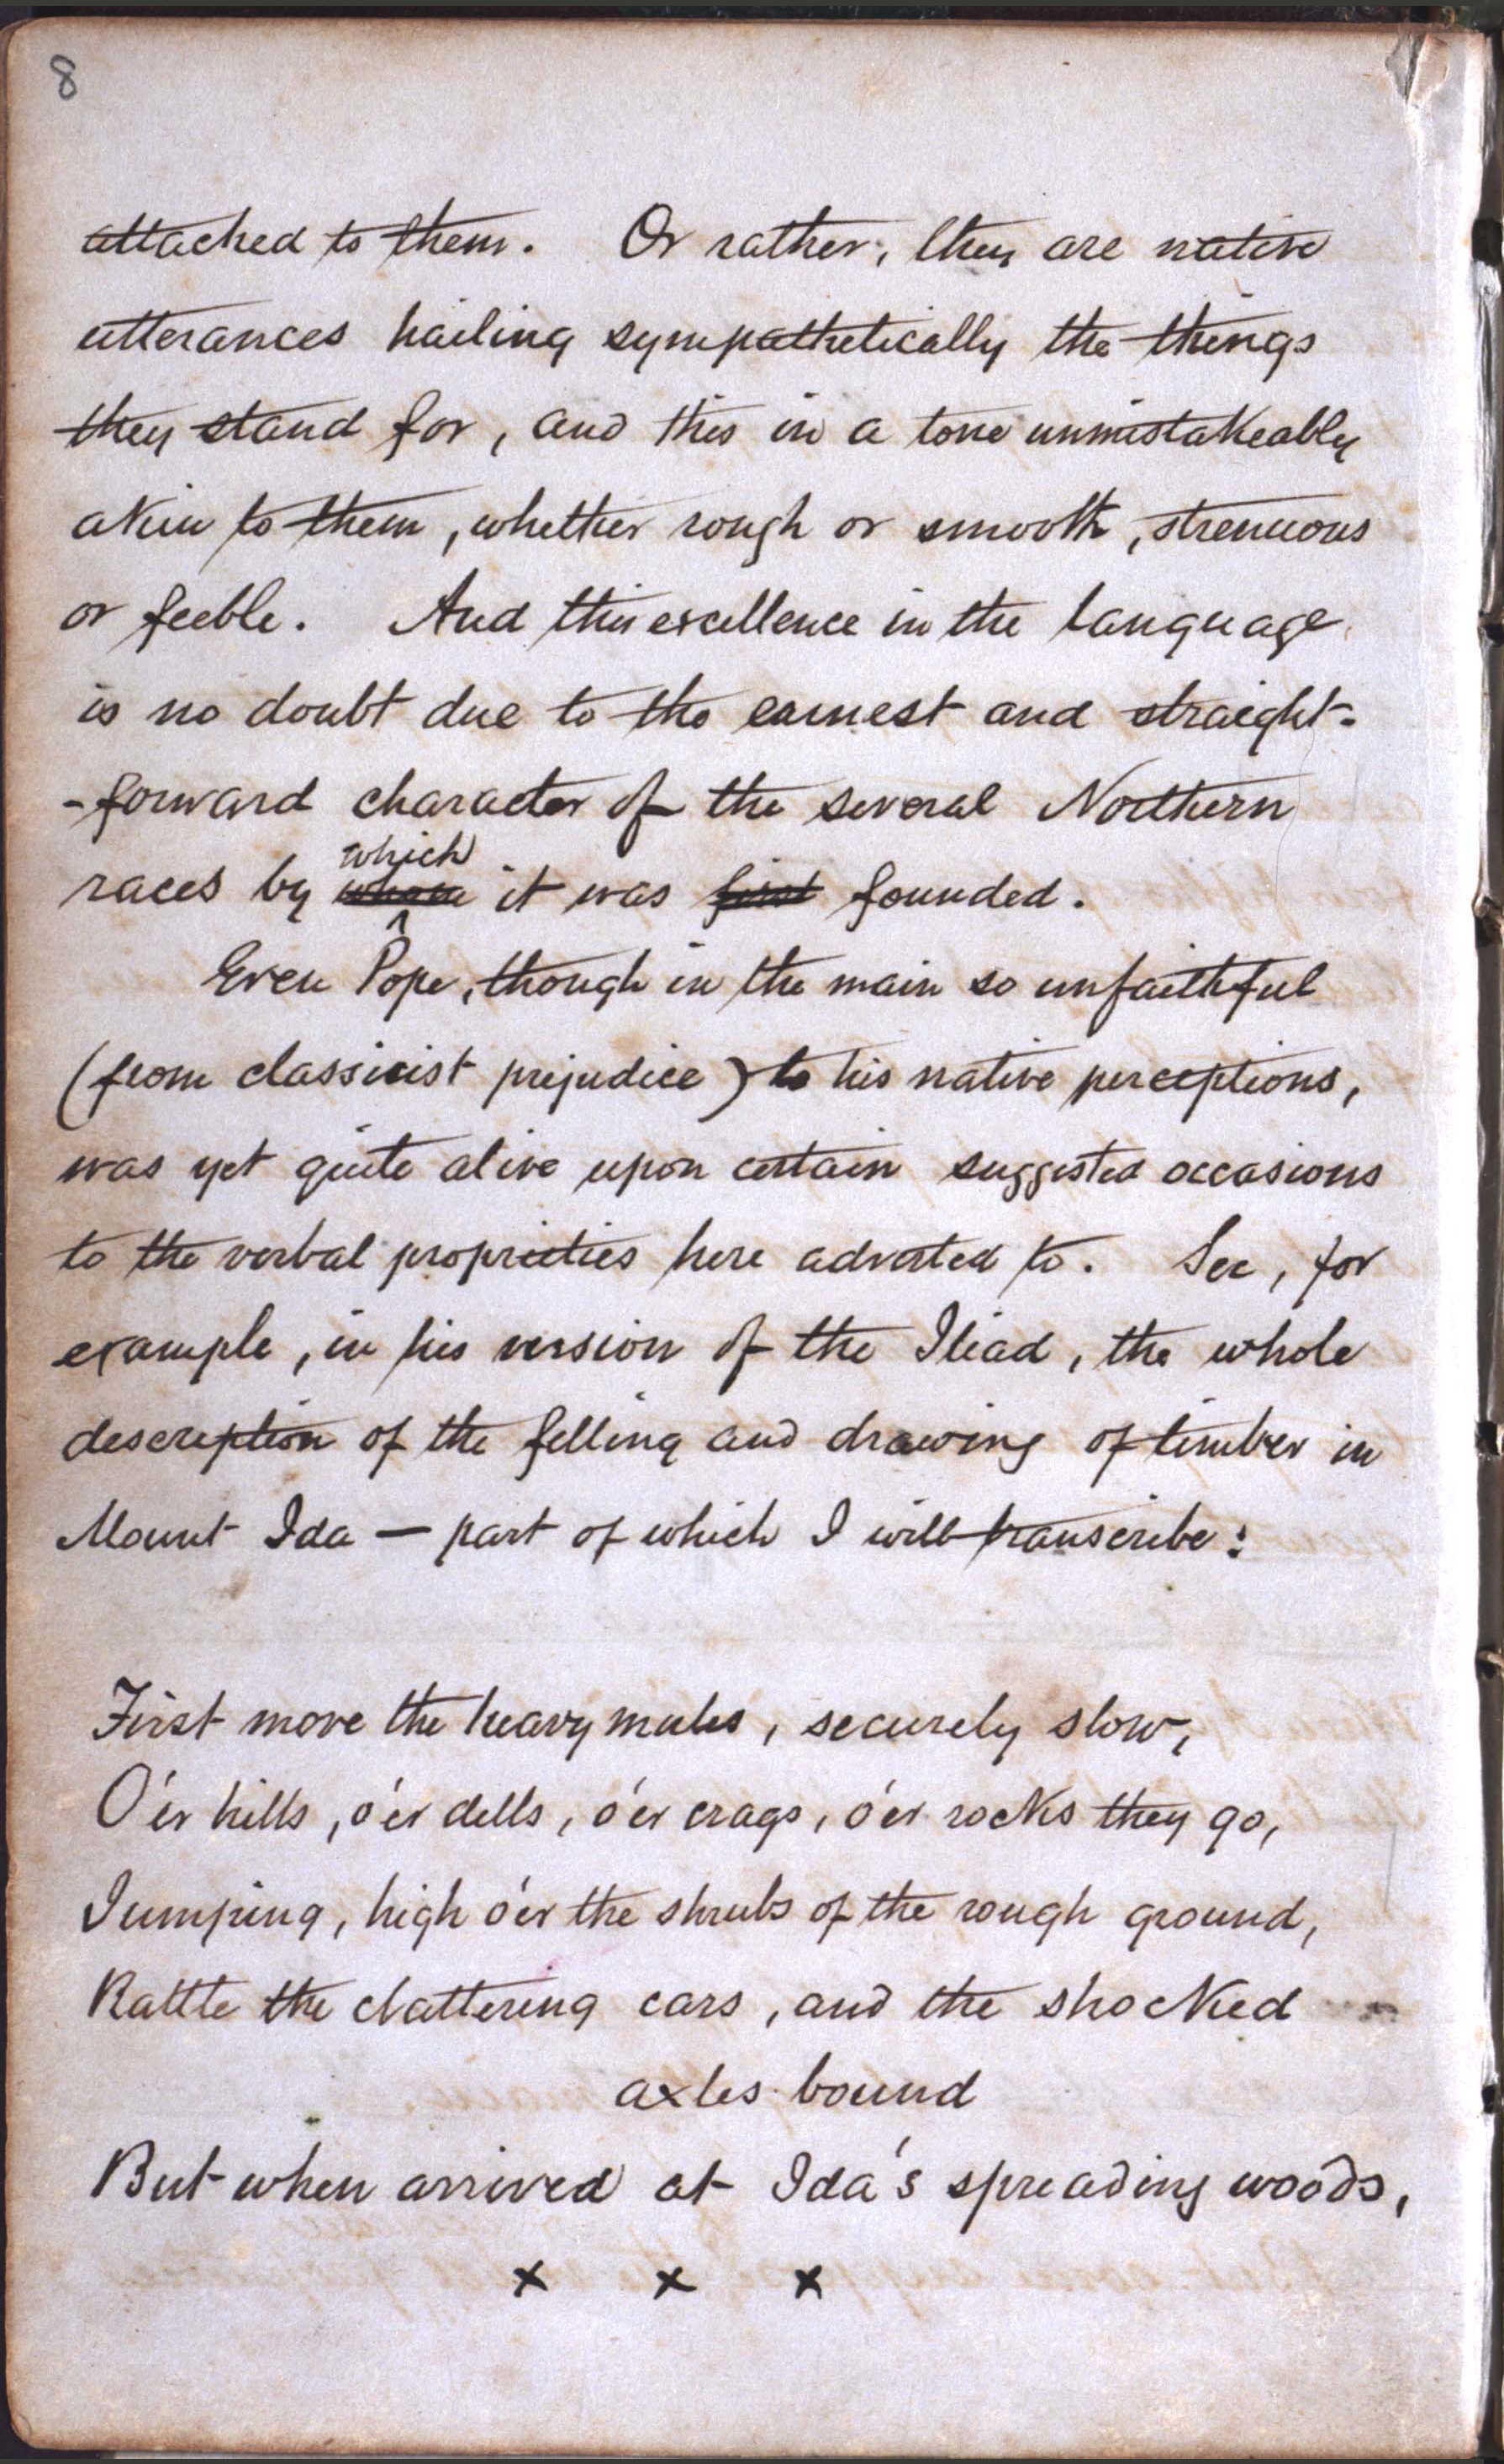 8
attached to them. Or rather, they are native
utterances hailing sympathetically the things
they stand for, and this in a tone unmistakeably
akin to them, whether rough or smooth, strenuous
or feeble. And this excellence in the language
is no doubt due to the earnest and straight-
-forward character of the several Northern
which
races by whom it was first founded.
Even Pope, though in the main so unfaithful
(from classicist prejudice) to his native perceptions,
was yet quite alive upon certain suggested occasions
to the verbal proprieties here adverted to. See, for
example, in his version of the Iliad, the whole
description of the felling and drawing of timber in
Mount Ida — part of which I will transcribe:
First move the heavy mules, securely slow,
O'er hills, o'er dells, o'er crags, o'er rocks they go,
Jumping, high o'er the shrubs of the rough ground,
Rattle the clattering cars, and the shocked
axles bound
But when arrived at Ida's spreading woods,
x x x